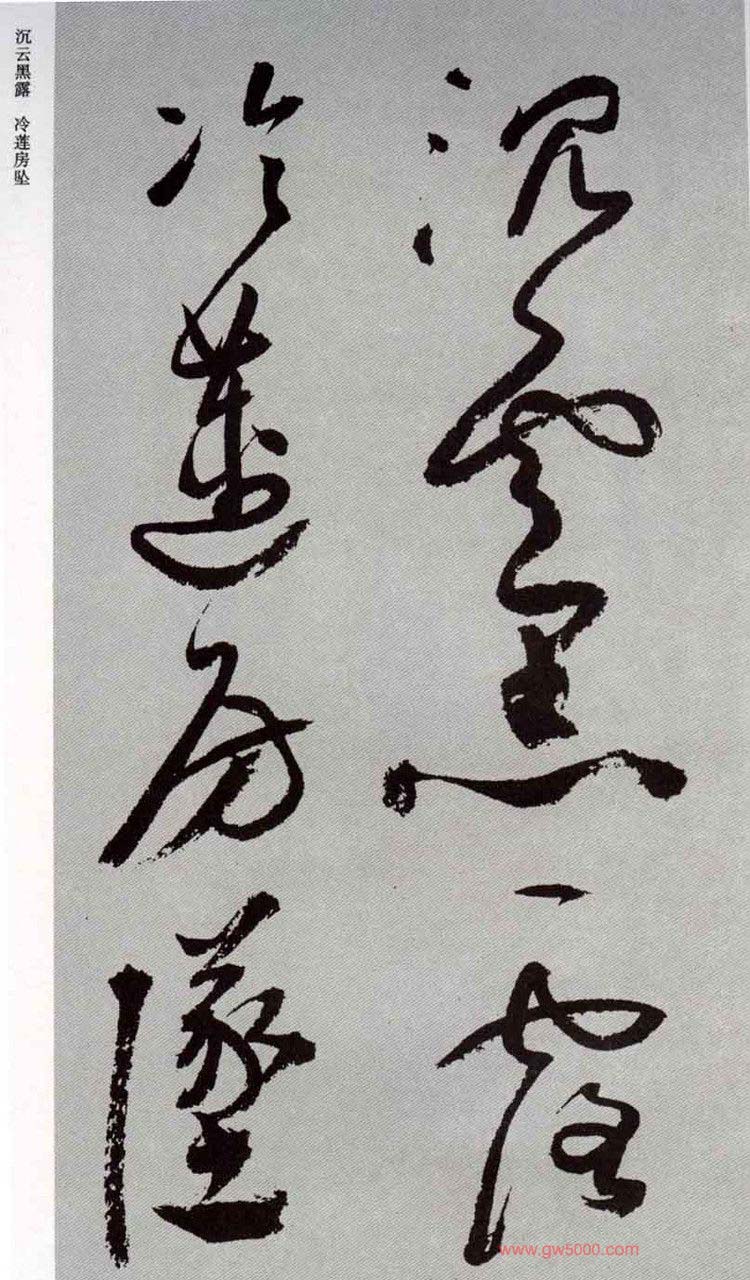 沉云黑露　冷莲房坠
沉雲黑露
冷蓮房墜
www.gw5000.com